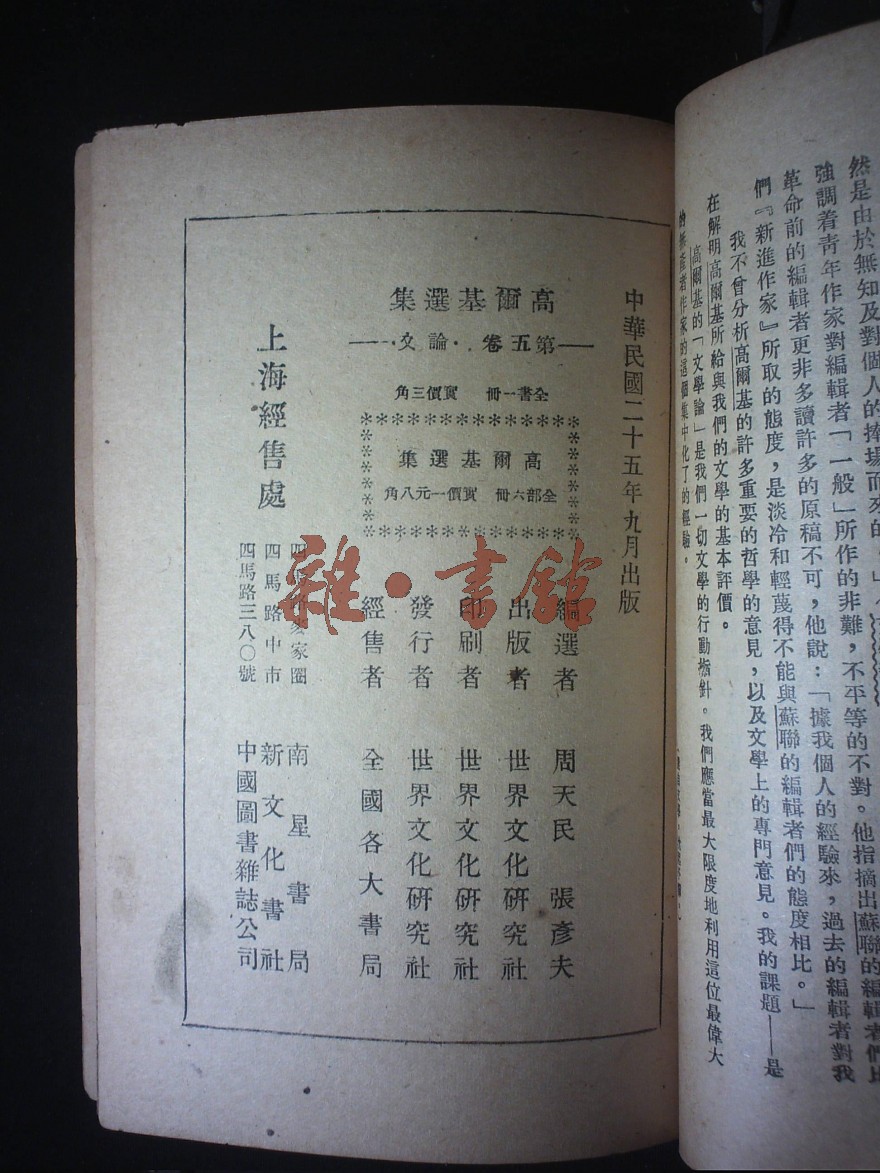 然是由於無知及對個人的捧場而來的。」
強調着青年作家對編輯者「一般」所作的非難，不平等的不對。他指摘出蘇聯的編輯者們比
革命前的編輯者更非多讀許多的原稿不可，他說：「據我個人的經驗來，過去的編輯者對我
們『新進作家』所取的態度，是淡冷和輕蔑得不能與蘇聯的編輯者們的態度相比。」
我不曾分析高爾基的許多重要的哲學的意見，以及文學上的專門意見。我的課題——是
在解明高爾基所給與我們的文學的基本評價。
高爾基的「文學論」是我們一切文學的行動指針。我們應當最大限度地利用這位最偉大
的無產者作家的這個集中化了的經驗。
中華民國二十五年九月出版
高爾基選集
——第五卷·論文·——
全書一冊 實價三角
高爾基選集
全部六冊 實價一元八角
編選者 周天民 張彥夫
出版者 世界文化研究社
印刷者 世界文化研究社
發行者 世界文化研究社
經售者 全國各大書局
上海經售處
四馬路麥家圈 南星書局
四馬路中市 新文化書社
四馬路三八〇號 中國圖書雜誌公司
雜·書館